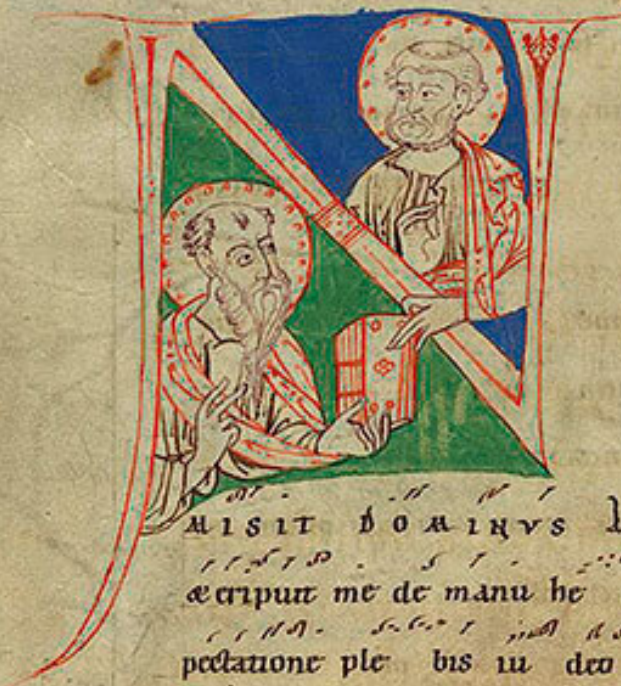 N
MISIT DOMINUS
& eripuit me de manu he
pectatione ple bis iu deo